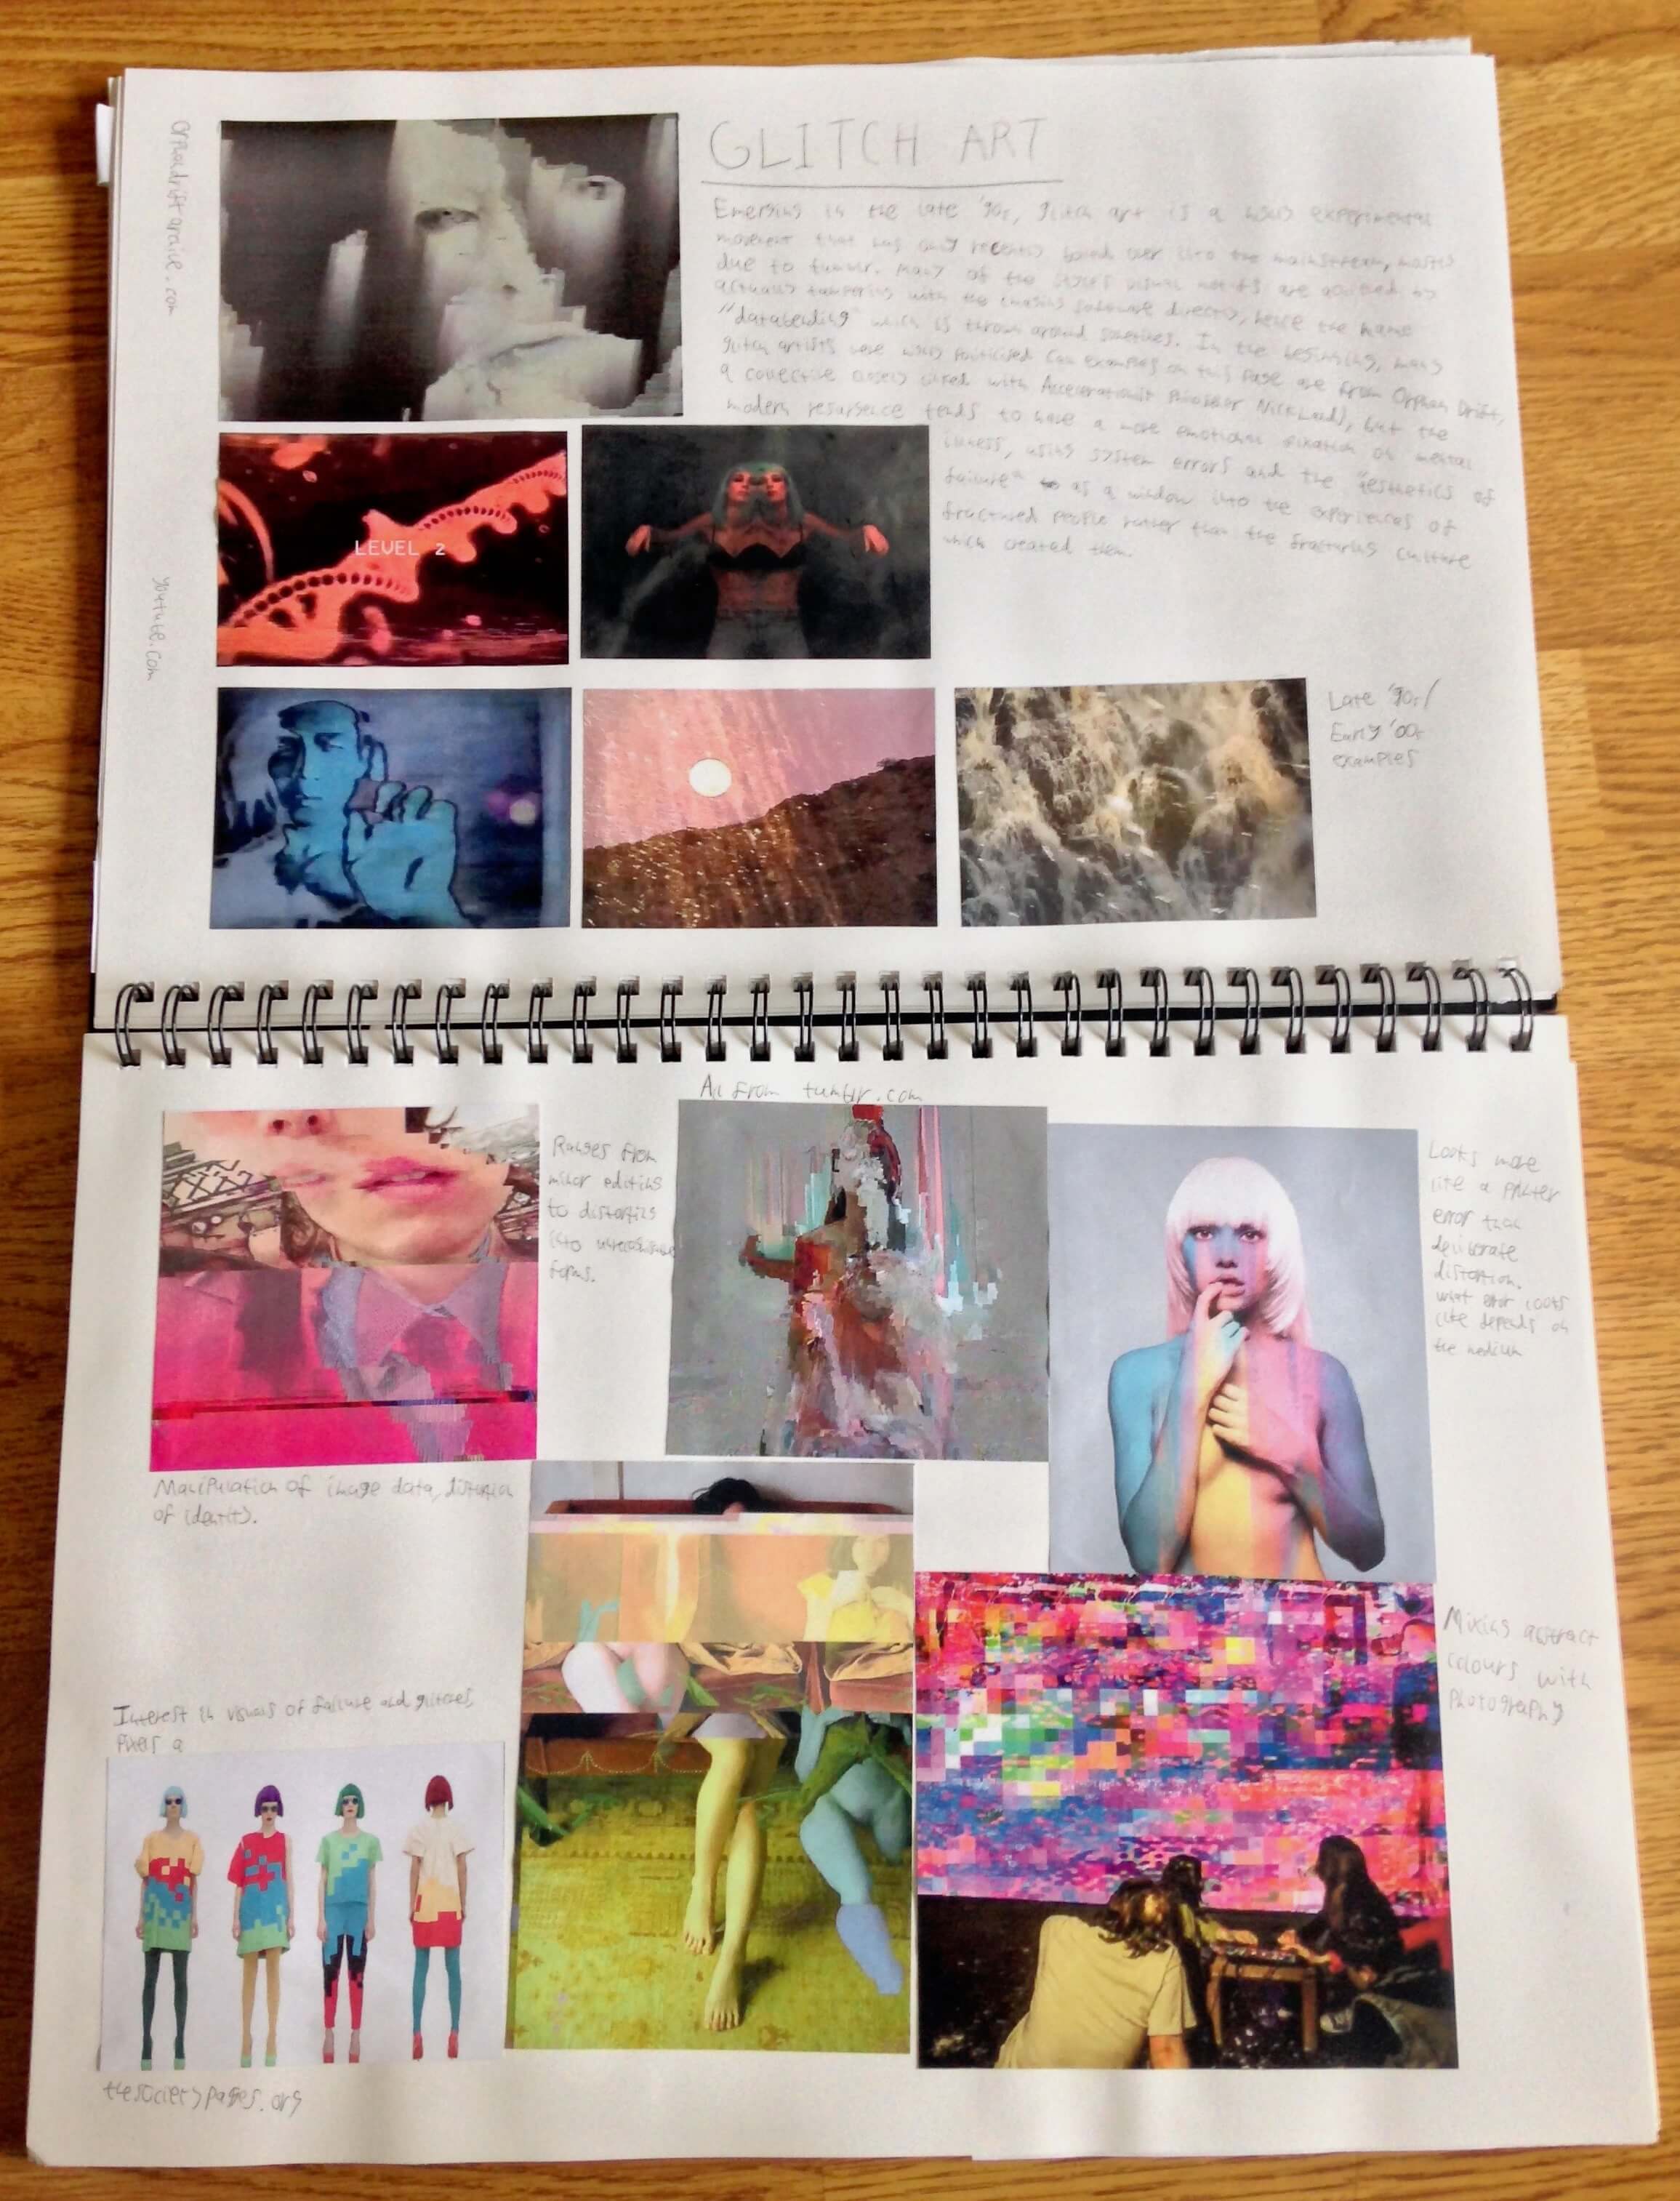 GLITCH ART
Emerging in the late '90s, glitch art is a experimental
movement that has only recently into the mainstream, mostly
due to tumblr. Many of the style's visual motifs are acquired by
actually tampering with the software directly, hence the name
"databending" which is thrown around sometimes. In the beginning, many
glitch artists were politicised (an examples on this page are from Orphan Drift,
a collective closely with Accelerationist Philosopher Nick Land), but the
modern resurgence tends to have a more emotional fixation on mental
illness, using system errors and the "aesthetics of
failure" as a window into the experiences of
fractured people rather than the fracturing culture
which created them.
youtube.com
LEVEL 2
Late '90s/
Early '00s
examples
All from tumblr.com
Ranges from
minor editing
to distorting
into
forms.
Looks more
like a printer
error than
deliberate
distortion.
What error looks
like depends on
the medium
Manipulation of image data, distortion
of identity.
Interest in visuals of failure and glitches,
Pixels a
Mixing abstract
colours with
photography
thesocietypages.org